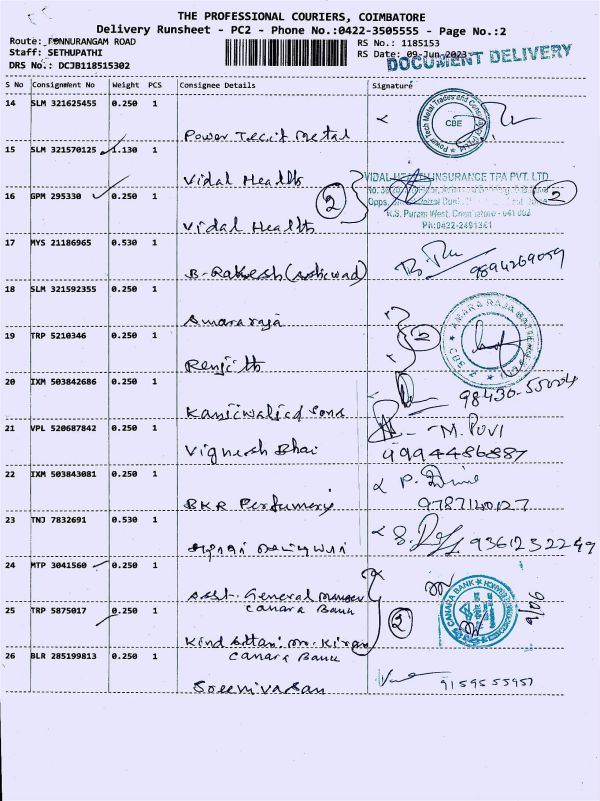 THE PROFESSIONAL COURIERS, COIMBATORE
Delivery Runsheet - PC2 - Phone No.:0422-3505555 - Page No.:2
Route: PONNURANGAM ROAD
RS No.: 1185153
Staff: SETHUPATHI
RS Date: 09-Jun-2023
DOCUMENT DELIVERY
DRS No.: DCJB118515302
S No Consignment No Weight PCS Consignee Details Signature
14 SLM 321625455 0.250 1
Metal
CBE
15 SLM 321570125 1.130 1
Vidal Health
VIDAL HEALTH INSURANCE TPA PVT. LTD
16 GPM 295330 0.250 1
2
2
R.S. Puram West, Coimbatore - 641 002
Ph:0422-2491341
Vidal Health
17 MYS 21186965 0.530 1
B. Rakesh
9894269059
18 SLM 321592355 0.250 1
Amararaja
AMARA RAJA
19 TRP 5210346 0.250 1
2
Renjith
CBE-2
20 IXM 503842686 0.250 1
98430-55004
Sons
21 VPL 520687842 0.250 1
M. PUVI
Vignesh Bhai
9994486887
22 IXM 503843081 0.250 1
P.
BKR Perfumery
9787140127
23 TNJ 7832691 0.530 1
S.
9361232249
24 MTP 3041560 0.250 1
Asst. General Manager
Canara Bank
CANARA BANK
25 TRP 5875017 0.250 1
2
9/6
Kind Attan: Mr. Kiran
Canara Bank
26 BLR 285199813 0.250 1
Sreenivasan
9159555957